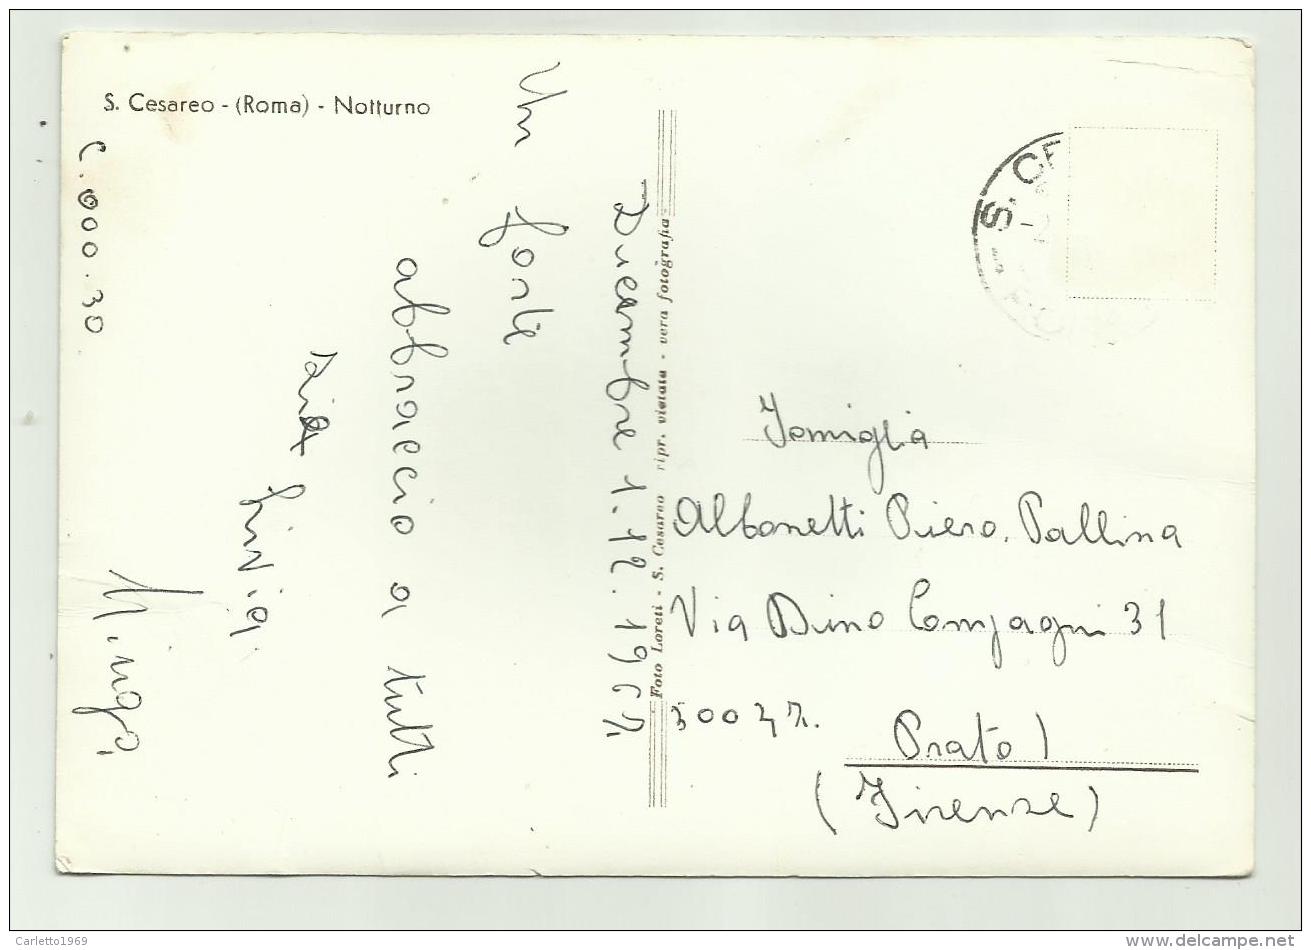 S. Cesareo - (Roma) - Notturno
C. 000.30
Dicembre 1.12.1967
Un forte
abbraccio a tutti
Livia
Foto Loreti - S. Cesareo ripr. vietata - vera fotografia
S. CE
Famiglia
Albonetti Piero. Pallina
Via Dino Compagni 31
50047.
Prato)
(Firenze)
Carletto1969
delcampe.net